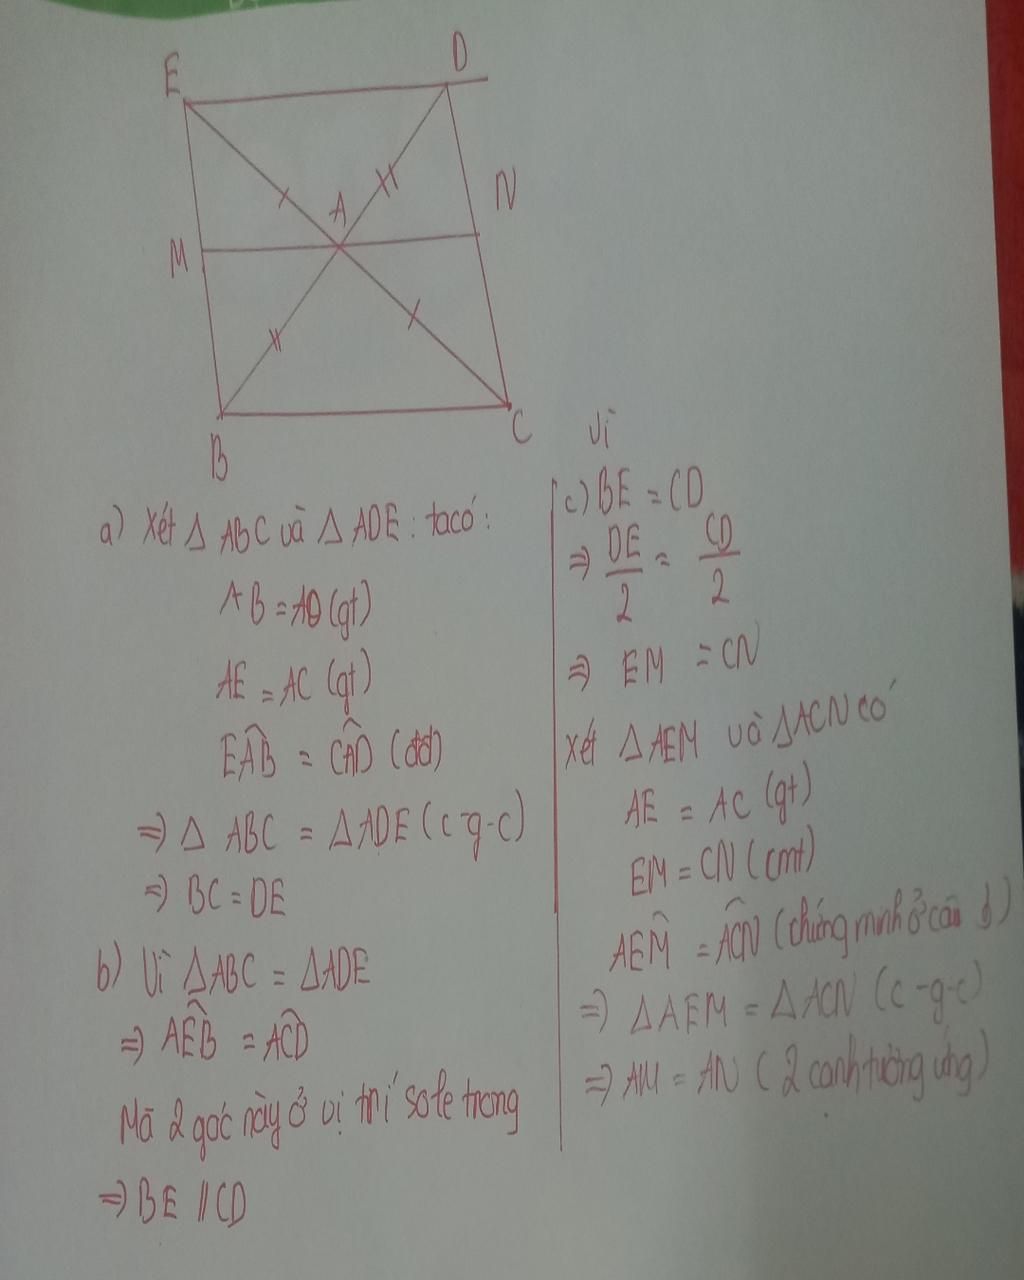 E
D
A
N
M
B
C
a) Xét Δ ABC và Δ ADE : ta có :
AB = AD (gt)
AE = AC (gt)
EÂB = CÂD (đđ)
=> Δ ABC = Δ ADE (c-g-c)
=> BC = DE
b) Vì ΔABC = ΔADE
=> AÊB = AĈD
Mà 2 góc này ở vị trí so le trong
=> BE // CD
Vì
c) BE = CD
=> DE/2 = CD/2
=> EM = CN
Xét ΔAEM và ΔACN có
AE = AC (gt)
EM = CN (cmt)
AÊM = AĈN (chứng minh ở câu b)
=> ΔAEM = ΔACN (c-g-c)
=> AM = AN (2 cạnh tường ứng)